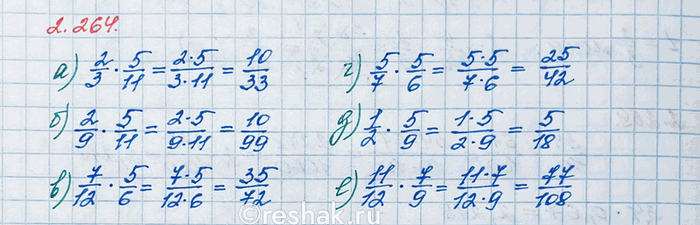 2.264.
а) 2/3 · 5/11 = 2·5/3·11 = 10/33
б) 2/9 · 5/11 = 2·5/9·11 = 10/99
в) 7/12 · 5/6 = 7·5/12·6 = 35/72
г) 5/7 · 5/6 = 5·5/7·6 = 25/42
д) 1/2 · 5/9 = 1·5/2·9 = 5/18
е) 11/12 · 7/9 = 11·7/12·9 = 77/108
©reshak.ru